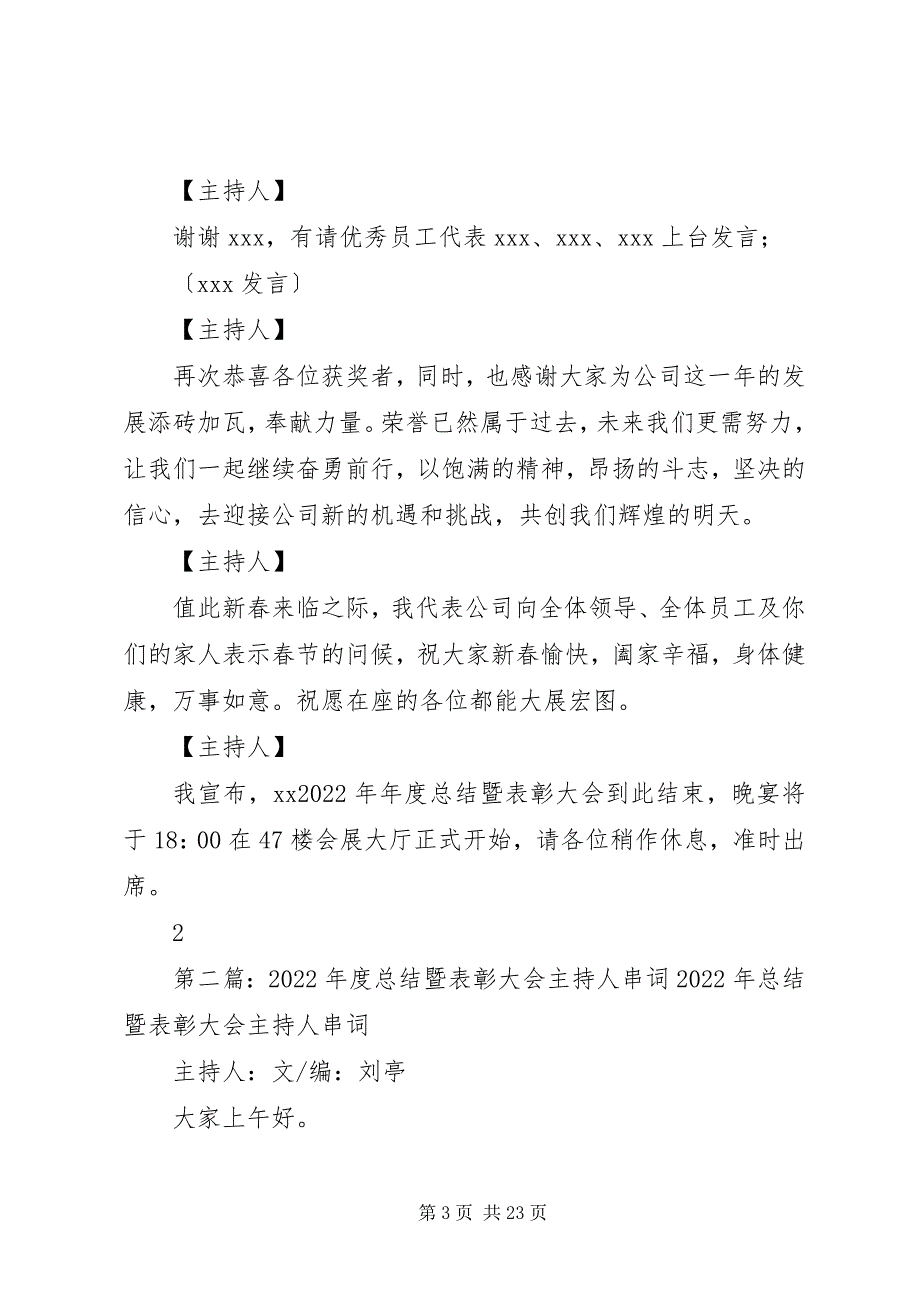 【主持人】
谢谢 xxx，有请优秀员工代表 xxx、xxx、xxx 上台发言；
〔xxx 发言〕
【主持人】
再次恭喜各位获奖者，同时，也感谢大家为公司这一年的发
展添砖加瓦，奉献力量。荣誉已然属于过去，未来我们更需努力，
让我们一起继续奋勇前行，以饱满的精神，昂扬的斗志，坚决的
信心，去迎接公司新的机遇和挑战，共创我们辉煌的明天。
【主持人】
值此新春来临之际，我代表公司向全体领导、全体员工及你
们的家人表示春节的问候，祝大家新春愉快，阖家辛福，身体健
康，万事如意。祝愿在座的各位都能大展宏图。
【主持人】
我宣布，xx2022 年年度总结暨表彰大会到此结束，晚宴将
于 18：00 在 47 楼会展大厅正式开始，请各位稍作休息，准时出
席。
2
第二篇：2022 年度总结暨表彰大会主持人串词 2022 年总结
暨表彰大会主持人串词
主持人：文/编：刘亭
大家上午好。
第 3 页 共 23 页